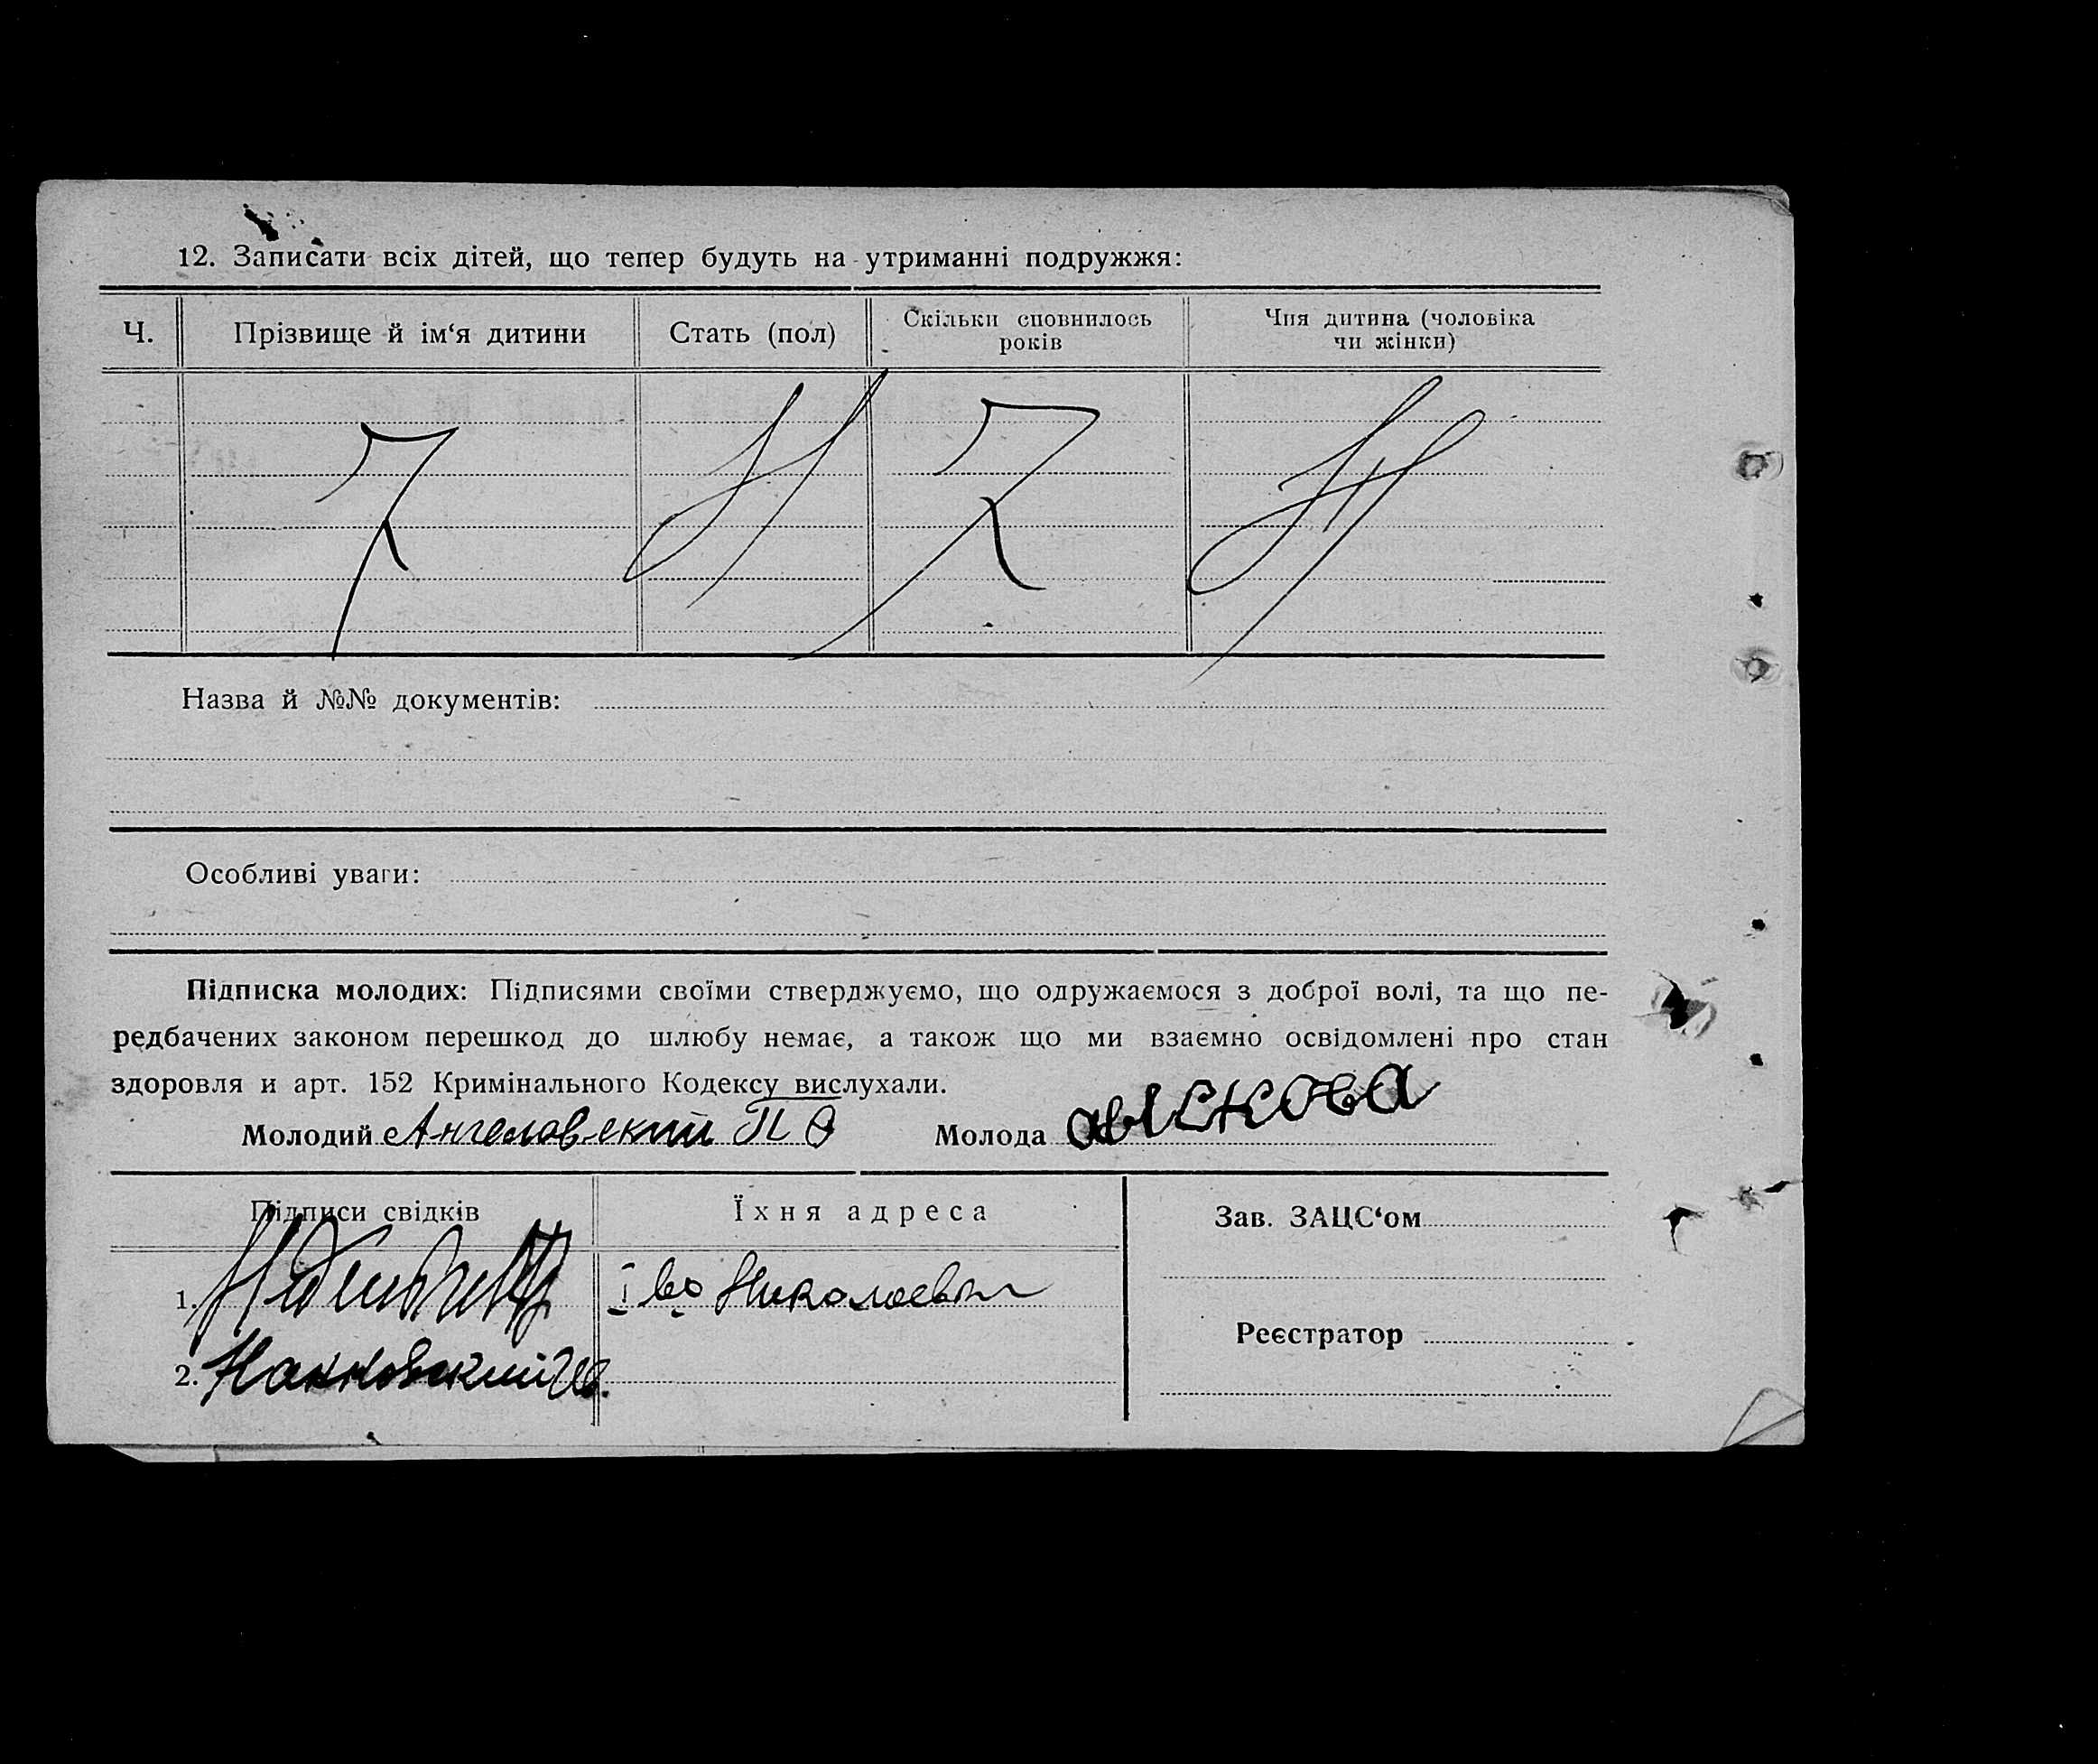 12. Записати всіх дітей, що тепер будуть на утриманні подружжя:
Ч. Прізвище й ім‘я дитини Стать (пол) Скільки сповнилось років Чия дитина (чоловіка чи жінки)
Назва й №№ документів:
Особливі уваги:
Підписка молодих: Підписями своїми стверджуємо, що одружаємося з доброї волі, та що пе-
редбачених законом перешкод до шлюбу немає, а також що ми взаємно освідомлені про стан
здоровля и арт. 152 Кримінального Кодексу вислухали.
Молодий Ангеловский П Ф Молода
Підписи свідків Їхня адреса Зав. ЗАЦС‘ом
1.
Реєстратор
2.